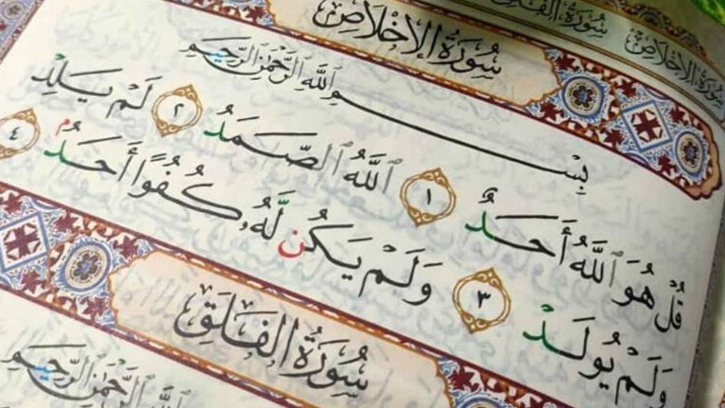 سُورَةُ الإِخْلَاصِ سُورَةُ الفَلَقِ
سُورَةُ الإِخْلَاصِ
بِسْمِ ٱللَّهِ ٱلرَّحْمَٰنِ ٱلرَّحِيمِ
قُلْ هُوَ ٱللَّهُ أَحَدٌ ١ ٱللَّهُ ٱلصَّمَدُ ٢ لَمْ يَلِدْ
وَلَمْ يُولَدْ ٣ وَلَمْ يَكُن لَّهُۥ كُفُوًا أَحَدٌۢ ٤
سُورَةُ الفَلَقِ
بِسْمِ ٱللَّهِ ٱلرَّحْمَٰنِ ٱلرَّحِيمِ